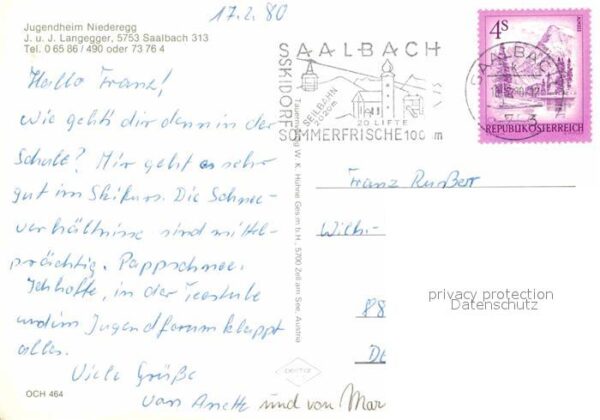 17.2.80
Jugendheim Niederegg
J. u. J. Langegger, 5753 Saalbach 313
Tel. 0 65 86 / 490 oder 73 76 4
Hallo Franz!
Wie geht's dir denn in der
Schule? Mir geht es sehr
gut im Skikurs. Die Schnee-
verhältnisse sind mittel-
prächtig. Pappschnee.
Ich hoffe, in der Teestube
und im Jugendforum klappt
alles.
Viele Grüße
von Anette und von Mar
OCH 464
SAALBACH
SKIDORF
SEILBAHN
2020m
20 LIFTE
SOMMERFRISCHE 100 m
W. K. Hühne Ges.m.b.H., 5700 Zell am See, Austria
4S
REPUBLIK ÖSTERREICH
SAALBACH
Franz
Wilh.-
88
privacy protection
Datenschutz